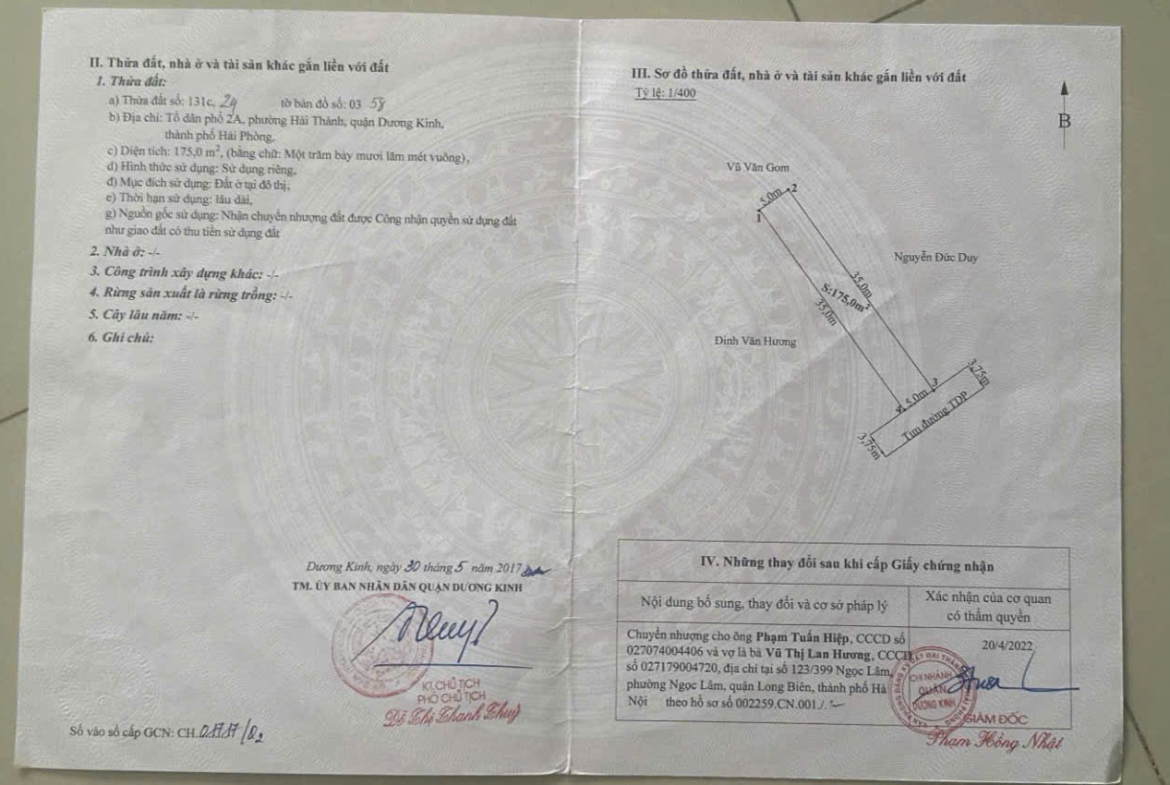 II. Thửa đất, nhà ở và tài sản khác gắn liền với đất
1. Thửa đất:
a) Thửa đất số: 131c, tờ bản đồ số: 03 58
b) Địa chỉ: Tổ dân phố 2A, phường Hải Thành, quận Dương Kinh,
thành phố Hải Phòng,
c) Diện tích: 175,0 m², (bằng chữ: Một trăm bảy mươi lăm mét vuông),
d) Hình thức sử dụng: Sử dụng riêng,
đ) Mục đích sử dụng: Đất ở tại đô thị,
e) Thời hạn sử dụng: lâu dài,
g) Nguồn gốc sử dụng: Nhận chuyển nhượng đất được Công nhận quyền sử dụng đất
như giao đất có thu tiền sử dụng đất
2. Nhà ở: -/-
3. Công trình xây dựng khác: -/-
4. Rừng sản xuất là rừng trồng: -/-
5. Cây lâu năm: -/-
6. Ghi chú:
Dương Kinh, ngày 30 tháng 5 năm 2017
TM. ỦY BAN NHÂN DÂN QUẬN DƯƠNG KINH
KT.CHỦ TỊCH
PHÓ CHỦ TỊCH
Đỗ Thị Thanh Thuỷ
Số vào sổ cấp GCN: CH.
III. Sơ đồ thửa đất, nhà ở và tài sản khác gắn liền với đất
Tỷ lệ: 1/400
B
Vũ Văn Gom
5.0m
2
1
Nguyễn Đức Duy
35,0m
S:175,0m²
35,0m
Đinh Văn Hương
3,75m
3
4
5.0m
Tim đường TDP
3,75m
IV. Những thay đổi sau khi cấp Giấy chứng nhận
Nội dung bổ sung, thay đổi và cơ sở pháp lý
Xác nhận của cơ quan
có thẩm quyền
Chuyển nhượng cho ông Phạm Tuấn Hiệp, CCCD số
027074004406 và vợ là bà Vũ Thị Lan Hương, CCCD
số 027179004720, địa chỉ tại số 123/399 Ngọc Lâm,
phường Ngọc Lâm, quận Long Biên, thành phố Hà
Nội theo hồ sơ số 002259.CN.001./.
20/4/2022
CHI NHÁNH
QUẬN
DƯƠNG KINH
GIÁM ĐỐC
Phạm Hồng Nhật